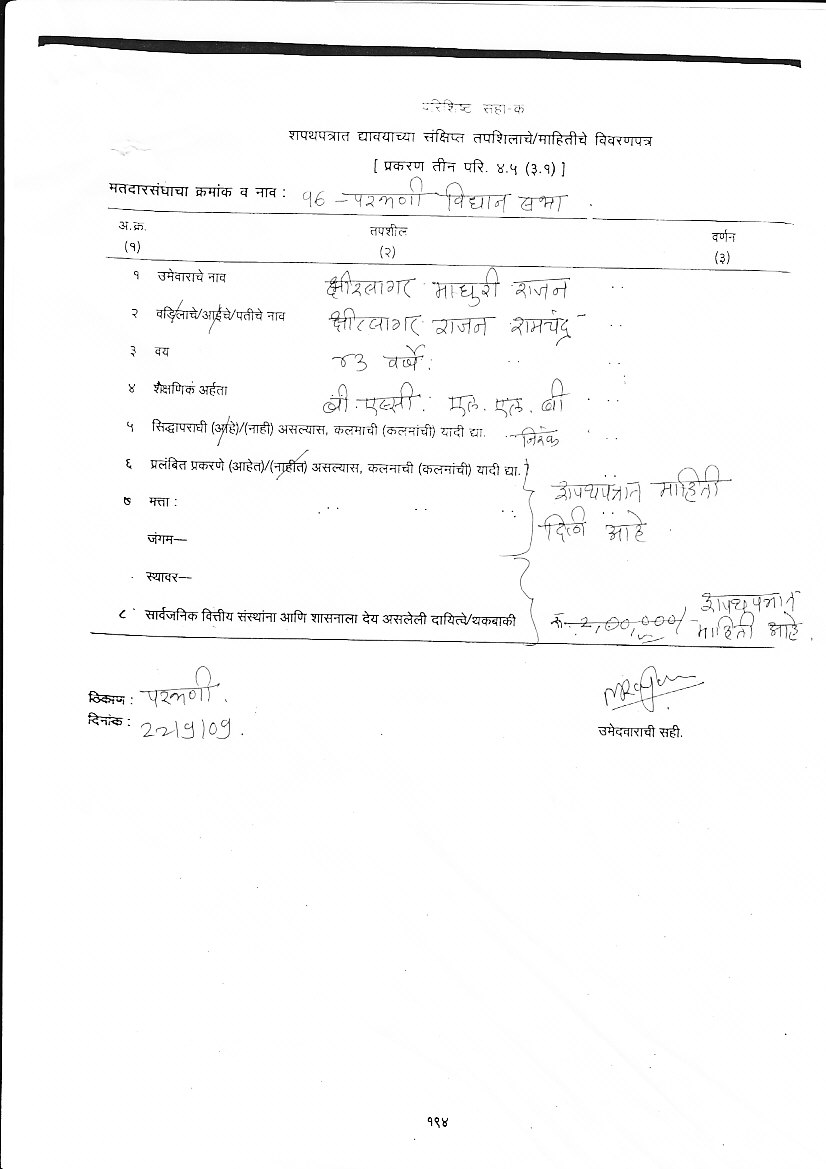 परिशिष्ट सहा-क
शपथपत्रात द्यावयाच्या संक्षिप्त तपशिलाचे/माहितीचे विवरणपत्र
[ प्रकरण तीन परि. ४.५ (३.१) ]
मतदारसंघाचा क्रमांक व नाव : 96 - परभणी विधान सभा
अ.क्र. तपशील वर्णन
(१) (२) (३)
१ उमेवाराचे नाव क्षीरसागर माधुरी राजन
२ वडिलाचे/आईचे/पतीचे नाव क्षीरसागर राजन रामचंद्र
३ वय ४३ वर्षे.
४ शैक्षणिक अर्हता बी. एस्सी. एल. एल. बी
५ सिद्धापराधी (आहे)/(नाही) असल्यास, कलमाची (कलमांची) यादी द्या. निरंक
६ प्रलंबित प्रकरणे (आहेत)/(नाहीत) असल्यास, कलनाची (कलनांची) यादी द्या.
शपथपत्रात माहिती
७ मत्ता :
दिली आहे
जंगम—
स्थावर—
८ सार्वजनिक वित्तीय संस्थांना आणि शासनाला देय असलेली दायित्वे/थकबाकी रु. 2,00,000/ शपथपत्रात
माहिती आहे.
ठिकाण : परभणी.
दिनांक : 22/9/09.
उमेदवाराची सही.
१९४